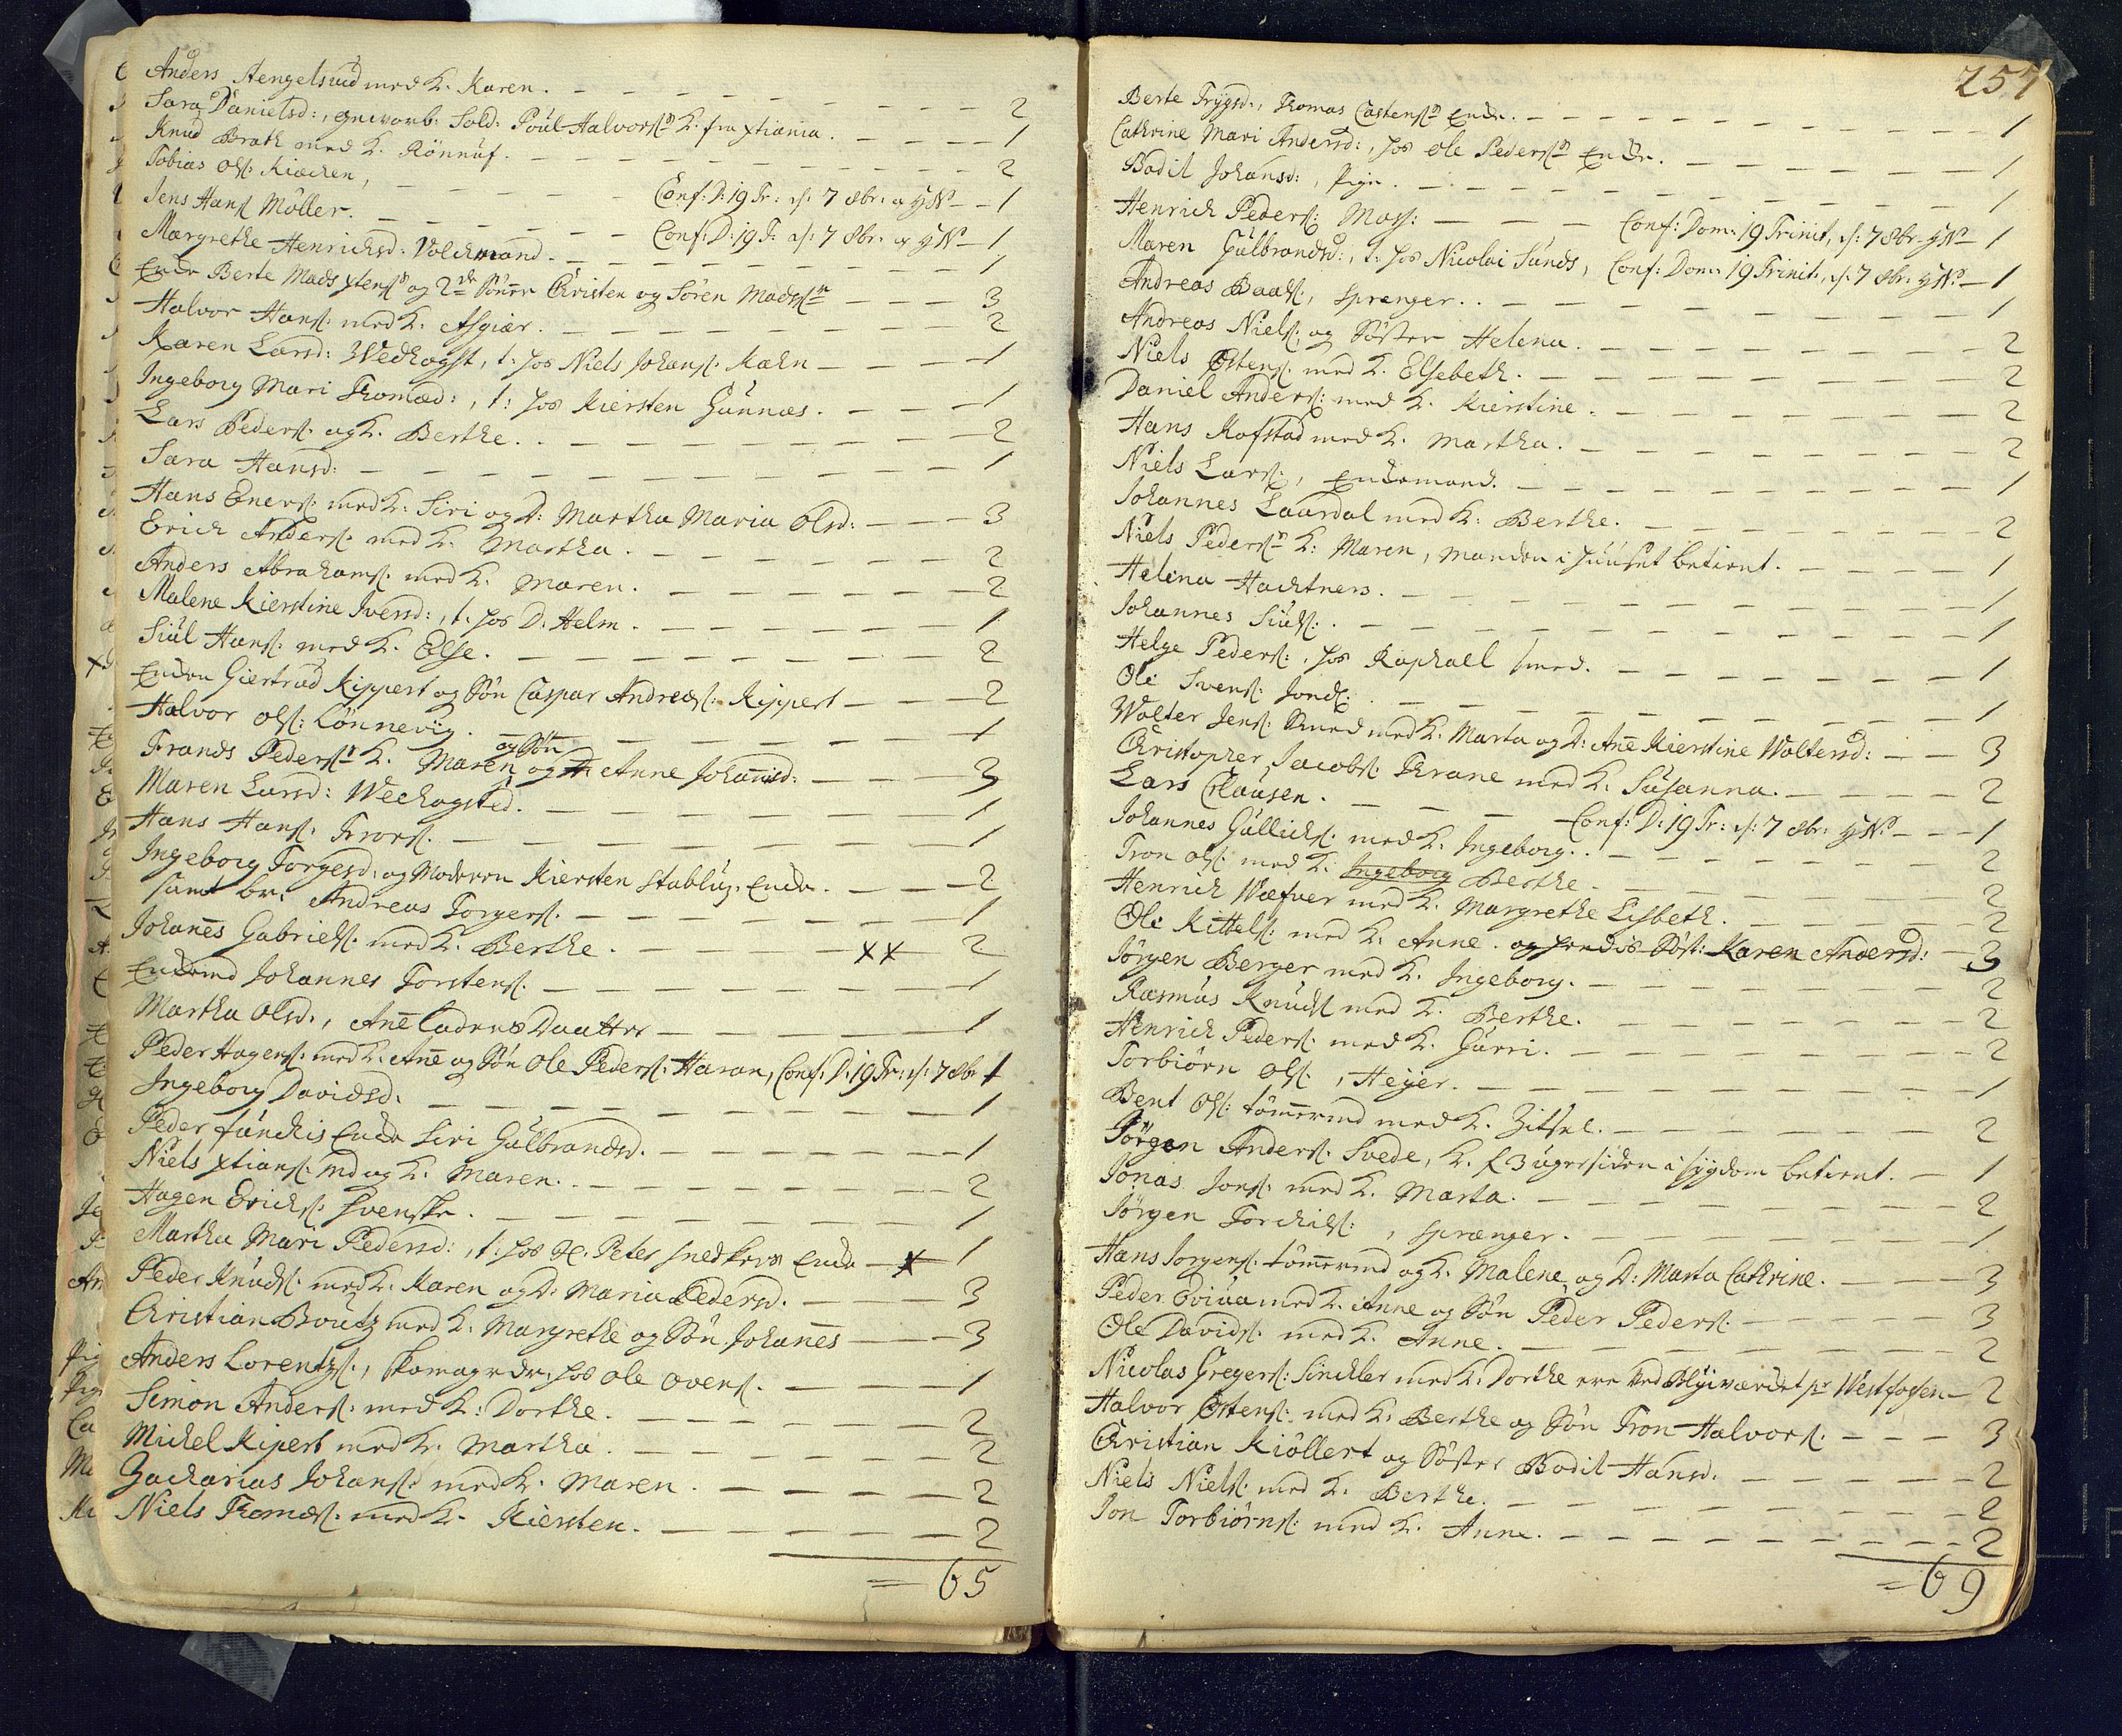 Anders Stengelsrud med K. Karen. - 2
Sara Danielsd:, gevorb: Sold: Poul Halvorsøn K. fra Xtiania. - 1
Knud Brath med K. Rönnuf. - 2
Tobias Ols: Kiøchen, - Conf: D: 19 Tr: d: 7 8br: a yN - 1
Jens Hans Möller. - Conf: D: 19 Tr: d: 7 8br: a yN - 1
Margrethe Henrichsd: Volckmand. - 1
Enke Berte Mads Xtens og 2de Sönner Christen og Sören Madssn - 3
Halvor Hans: med K. Asgiær. - 2
Karen Larsd: Wedhogst, t: hos Niels Johans: Kahn - 1
Ingeborg Mari Thomæd:, t: hos Kiersten Gunnas. - 1
Lars Peders: og K. Berthe. - 2
Sara Hansd: - 1
Hans Eners: med K: Siri og D: Martha Maria Olsd: - 3
Erich Anders: med K. Martha. - 2
Anders Abrahams: med K. Maren. - 2
Malene Kierstine Iversd:, t. hos D: Helm. - 1
Siul Hans: med K. Else. - 2
Enken Giertrud Kippert og Sön Caspar Andreæs: Kippert - 2
Halvor Ols: Lönnevig. - 1
og Sön
Frands Peders K. Maren og D: Anne Johannisd: - 3
Maren Larsd: Wedhogsted. - 1
Hans Hans: Frors: - 1
Ingeborg Torgesd: og Moderen Kiersten Stablug: Enke. - 2
samt br: Andreas Torgers: - 1
Johannes Gabriels: med K. Berthe. - xx 2
Enkemd Johannes Torstens: - 1
Martha Olsd:, Ane Cadens Daatter - 1
Peder Hagens: med K. Ane og Sön Ole Peders: Haran, Conf: D: 19 Tr: d: 7 8br 1
Ingeborg Davidsd: - 1
Peder Funchis Enke Siri Gulbrandsd. - 1
Niels Xtians: md og K. Maren. - 2
Hagen Erichs: Svenske. - 1
Martha Mari Pedersd:, t: hos H. Peter Snedkers Enke - x 1
Peder Knuds: med K. Karen og D. Maria Pedersd. - 3
Christian Boutz med K: Margrethe og Sön Johannes - 3
Anders Lorentz:, skomager, hos Ole Ovens: - 1
Simon Anders: med K: Dorthe. - 2
Michel Kipert med K. Martha. - 2
Zacharias Johans: med K. Maren. - 2
Niels Thomæs: med K. Kiersten. - 2
= 65
257
Berte Trygsd:, Thomas Castensøn Enke. - 1
Cathrine Mari Andersd:, hos Ole Pedersøn Enke. - 1
Bodil Johansd:, Pige. - 1
Henrich Peders: Moss: - Conf: Dom: 19 Trinit, d: 7 8br - yN - 1
Maren Gulbrandsd:, t: hos Nicolai Sunds, Conf: Dom: 19 Trinit:, d: 7 8br: yN - 1
Andreas Baads:, sprenger. - 1
Andreas Niels: og Söster Helena. - 2
Niels Östens: med K. Elsebeth. - 2
Daniel Anders: med K. Kierstine. - 2
Hans Kofstad med K. Martha. - 2
Niels Lars:, Enkemand. - 1
Johannes Laardal med K: Berthe. - 2
Niels Peders K: Maren, Manden i huuset betient. - 1
Helena Hachtners. - 1
Johannes Siuls: - 1
Helge Peders:, hos Raphael smed. - 1
Ole Svens: Jonds: - 1
Wolter Jens: smed med K: Marta og D: Ane Kierstine Woltersd: - 3
Christopher Jacobs: Thrane med K: Susanna. - 2
Lars Clausen. - Conf: D: 19 Tr: d: 7 8br: yN - 1
Johannes Gullichs: med K. Ingeborg. - 2
Tron Ols: med K: Ingeborg Berthe. - 2
Henrich Wæfver med K. Margrethe Lisbeth. - 2
Ole Kittels: med K. Anne. og hendis Söst: Karen Andersd: - 3
Jörgen Berger med K. Ingeborg. - 2
Rasmus Knuds med K. Berthe. - 2
Henrich Peders: med K. Gurri. - 2
Torbiörn Ols:, Heyer. - 1
Bent Ols: tömermd med K. Zitsel. - 2
Jörgen Anders: Svede, K. f 3 uger siden i sygdom betient. - 1
Jonas Jons: med K. Marta. - 2
Jörgen Torchils:, sprænger. - 1
Hans Jorgens: tömermd og K. Malene, og D: Marta Cathrine. - 3
Peder Eviua med K. Anne og Sön Peder Peders: - 3
Ole Davids: med K. Anne. - 2
Nicolas Gregers: Sinckler med K. Dorthe ere ved Blyeværdet pr Westfossen - 2
Halvor Östens: med K. Berthe og Sön Tron Halvors: - 3
Christian Kiöllert og Söster Bodil Hansd. - 2
Niels Niels: med K. Berthe. - 2
Jon Torbiörns: med K. Anne. - 2
= 69